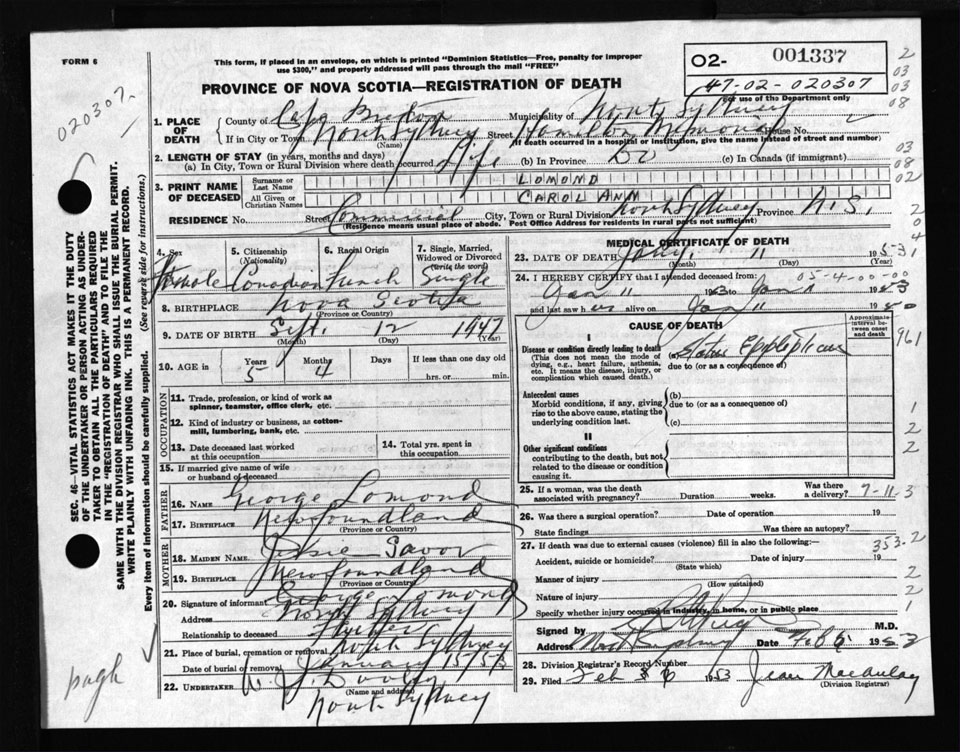 FORM 6
This form, if placed in an envelope, on which is printed "Dominion Statistics—Free, penalty for improper
use $300," and properly addressed will pass through the mail "FREE"
PROVINCE OF NOVA SCOTIA—REGISTRATION OF DEATH
02- 001337
47-02-020307
For use of the Department only
020307
1. PLACE OF DEATH
County of Cape Breton Municipality of North Sydney
If in City or Town North Sydney Street Hamilton Memorial House No.
(Name) (If death occurred in a hospital or institution, give the name instead of street and number)
2. LENGTH OF STAY (in years, months and days)
(a) In City, Town or Rural Division where death occurred Life (b) In Province Do (c) In Canada (if immigrant)
3. PRINT NAME OF DECEASED
Surname or Last Name LOMOND
All Given or Christian Names CAROL ANN
RESIDENCE No. Street Commercial City, Town or Rural Division North Sydney Province N.S.
(Residence means usual place of abode. Post Office Address for residence in rural parts not sufficient)
4. Sex Female
5. Citizenship (Nationality) Canadian
6. Racial Origin French
7. Single, Married, Widowed or Divorced (write the word) Single
8. BIRTHPLACE Nova Scotia
(Province or Country)
9. DATE OF BIRTH Sept. 12 1947
(Month) (Day) (Year)
10. AGE in Years 5 Months 4 Days If less than one day old
hrs. or min.
OCCUPATION
11. Trade, profession, or kind of work as spinner, teamster, office clerk, etc.
12. Kind of industry or business, as cotton-mill, lumbering, bank, etc.
13. Date deceased last worked at this occupation
14. Total yrs. spent in this occupation
15. If married give name of wife or husband of deceased
FATHER
16. NAME George Lomond
17. BIRTHPLACE Newfoundland
(Province or Country)
MOTHER
18. MAIDEN NAME Jessie Savor
19. BIRTHPLACE Newfoundland
(Province or Country)
20. Signature of informant George Lomond
Address North Sydney
Relationship to deceased Father
21. Place of burial, cremation or removal North Sydney
Date of burial or removal January
22. UNDERTAKER W. J. Dooley
(Name and address)
North Sydney
MEDICAL CERTIFICATE OF DEATH
23. DATE OF DEATH Jany. 11 1953
(Month) (Day) (Year)
05-4-00-00
24. I HEREBY CERTIFY that I attended deceased from:
Jan 11 1953 to Jan 11 1953
and last saw h alive on Jan 11 19
CAUSE OF DEATH
Approximate interval between onset and death
I
Disease or condition directly leading to death
(This does not mean the mode of dying, e.g., heart failure, asthenia, etc. It means the disease, injury, or complication which caused death.)
(a) Status Epilepticus
due to (or as a consequence of)
Antecedent causes
Morbid conditions, if any, giving rise to the above cause, stating the underlying condition last.
(b)
due to (or as a consequence of)
(c)
II
Other significant conditions
contributing to the death, but not related to the disease or condition causing it.
25. If a woman, was the death associated with pregnancy? Duration weeks. Was there a delivery?
26. Was there a surgical operation? Date of operation 19
State findings Was there an autopsy?
27. If death was due to external causes (violence) fill in also the following:—
353-2
Accident, suicide or homicide? Date of injury 19
(State which)
Manner of injury
(How sustained)
Nature of injury
Specify whether injury occurred in industry, in home, or in public place
Signed by M.D.
Address North Sydney Date Feb 5 1953
28. Division Registrar's Record Number
29. Filed Feb 1953 Jean MacAulay
(Division Registrar)
961
SEC. 46—VITAL STATISTICS ACT MAKES IT THE DUTY
OF THE UNDERTAKER OR PERSON ACTING AS UNDER-
TAKER TO OBTAIN ALL THE PARTICULARS REQUIRED
IN THE "REGISTRATION OF DEATH" AND TO FILE THE
SAME WITH THE DIVISION REGISTRAR WHO SHALL ISSUE THE BURIAL PERMIT.
WRITE PLAINLY WITH UNFADING INK. THIS IS A PERMANENT RECORD.
Every item of information should be carefully supplied. (See reverse side for instructions.)